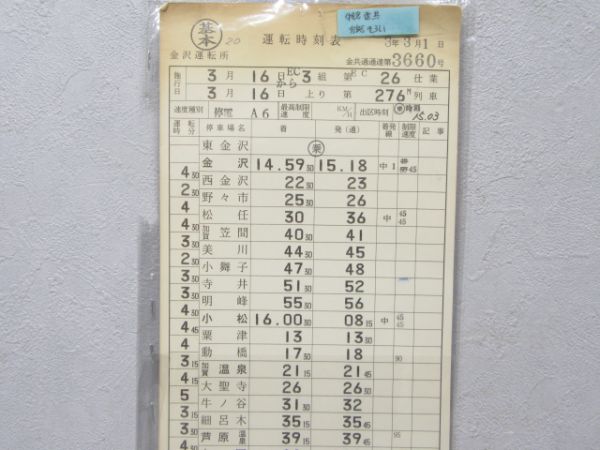 基本 20 運転時刻表 3年3月1日
金沢運転所 金共通達第3660号
施行日 3月16日から EC3組 第EC26仕業
3月16日 上り 第276M列車
速度種別 停電A6 最高制限速度 KM/H 出区時刻 15.03
運転時分 停車場名 着 発(通) 着発線 制限速度 記事
東金沢
金沢 14.59 30 15.18 中1 45
4 30 西金沢 22 30 23
2 30 野々市 25 30 26
4 松任 30 36 中 45 45
4 30 加賀笠間 40 30 41
3 30 美川 44 30 45
2 30 小舞子 47 30 48
3 30 寺井 51 30 52
3 30 明峰 55 30 56
4 30 小松 16.00 30 08 15 中 45 45
4 45 粟津 13 13 30
4 動橋 17 30 18 90
3 15 加賀温泉 21 15 21 45
4 15 大聖寺 26 26 30
5 牛ノ谷 31 30 32
3 15 細呂木 35 15 35 45
3 30 芦原温泉 39 15 39 45 95